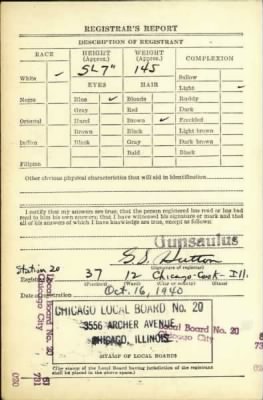 REGISTRAR'S REPORT
DESCRIPTION OF REGISTRANT
RACE HEIGHT (Approx.) WEIGHT (Approx.) COMPLEXION
5 7" 145
White ✓ EYES HAIR Sallow
Light ✓
Negro Blue ✓ Blonde Ruddy
Gray Red Dark
Oriental Hazel Brown ✓ Freckled
Brown Black Light brown
Indian Black Gray Dark brown
Bald Black
Filipino
Other obvious physical characteristics that will aid in identification
I certify that my answers are true; that the person registered has read or has had
read to him his own answers; that I have witnessed his signature or mark and that
all of his answers of which I have knowledge are true, except as follows:
Gunsaulus
Hutton
(Signature of registrar)
Station 20
37 12 Chicago-Cook- Ill.
(Precinct) (Ward) (City or county) (State)
Date of registration Oct. 16, 1940
CHICAGO LOCAL BOARD No. 20
3556 ARCHER AVENUE
CHICAGO, ILLINOIS
Local Board No. 20
Chicago City
STAMP OF LOCAL BOARD
(The stamp of the Local Board having jurisdiction of the registrant
shall be placed in the above space.)
Local Board No. 20
Chicago City